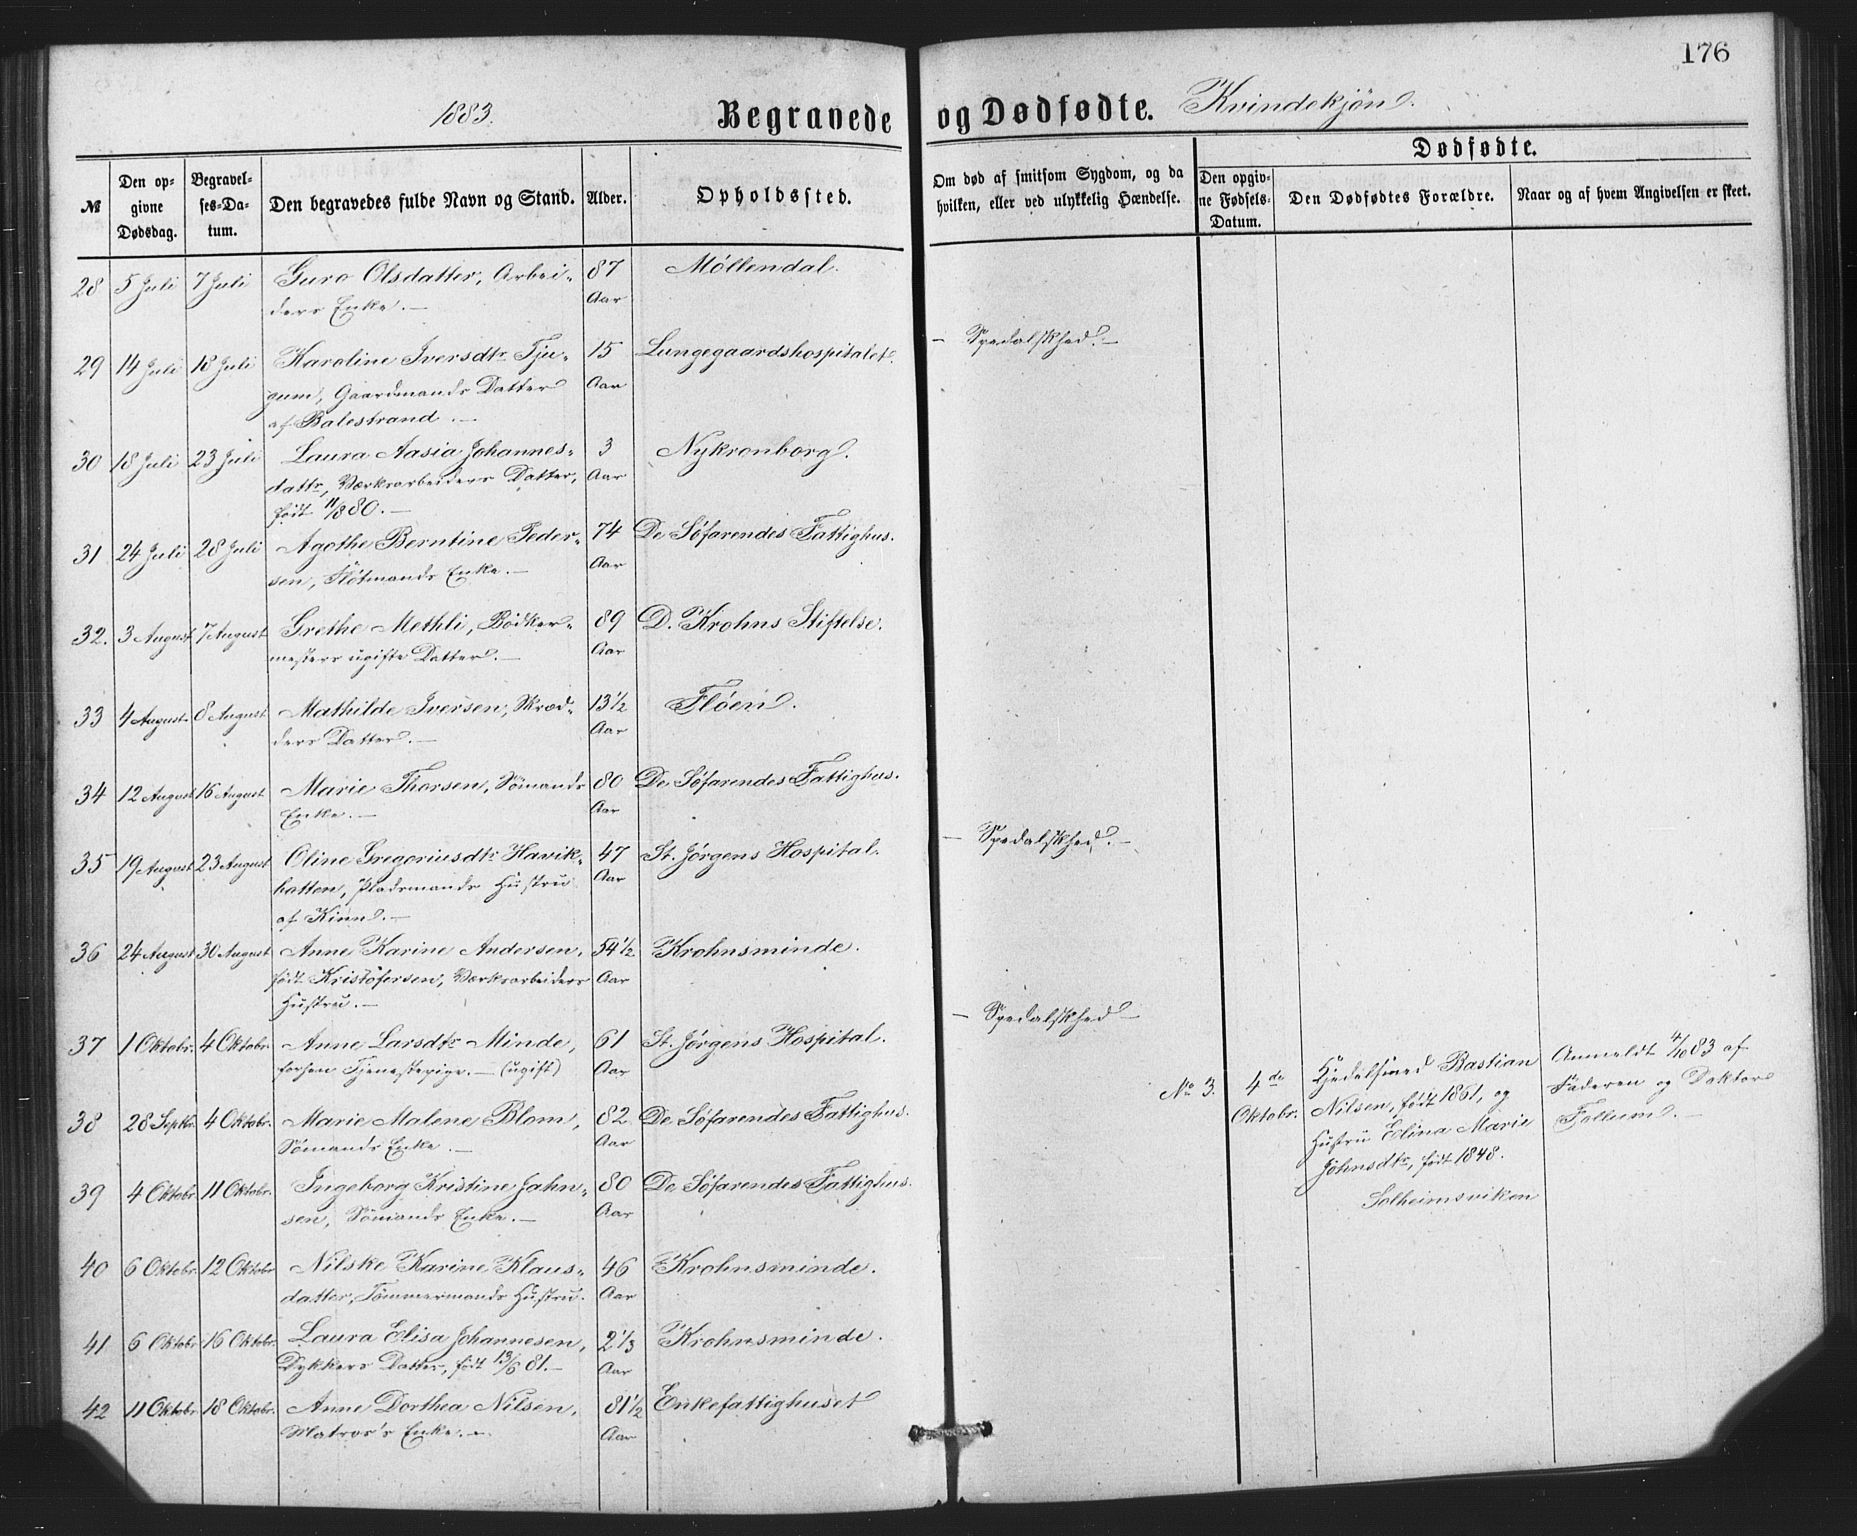 176
1883. Begravede og Dødfødte. Kvindekjøn.
№
Den opgivne Dødsdag.
Begravelses-Datum.
Den begravedes fulde Navn og Stand.
Alder.
Opholdssted.
Om død af smitsom Sygdom, og da hvilken, eller ved ulykkelig Hændelse.
Dødfødte.
Den opgivne Fødsels-Datum.
Den Dødfødtes Forældre.
Naar og af hvem Angivelsen er skeet.
28 5 Juli 7 Juli Guro Olsdatter, Arbei- 87 Møllendal.
ders Enke. — Aar
29 14 Juli 18 Juli Karoline Iversdtr Tju- 15 Lungegaardshospitalet. — Spedalskhed. —
gum, Gaardmands Datter Aar
af Balestrand. —
30 18 Juli 23 Juli Laura Aasia Johannes- 3 Nykronborg.
dattr, Værksarbeiders Datter, Aar
født 11/880. —
31 24 Juli 28 Juli Agathe Berntine Peder- 74 De Søfarendes Fattighus.
sen, Fløtmands Enke. — Aar
32. 3 August 7 August Grethe Methli, Bødker- 89 D. Krohns Stiftelse.
mesters ugifte Datter. — Aar
33 4 August 8 August Mathilde Iversen, Skræd- 13 1/2 Fløen.
ders Datter. — Aar
34 12 August 16 August Marie Thorsen, Sømands 80 De Søfarendes Fattighus.
Enke. — Aar
35 19 August 23 August Oline Gregoriusdtr Havik- 47 St. Jørgens Hospital. — Spedalskhed. —
botten, Pladsmands Hustru Aar
af Kinn. —
36 24 August 30 August Anne Karine Andersen, 54 1/2 Krohnsminde.
født Kristofersen, Værksarbeiders Aar
Hustru. —
37 1 Oktobr. 4 Oktobr. Anne Larsdtr Minde, 61 St. Jørgens Hospital. — Spedalskhed —
forhen Tjenestepige. — (ugift) Aar
38 28 Septbr. 4 Oktobr. Marie Malene Blom, 82 De Søfarendes Fattighus.
Sømands Enke. — Aar
39 4 Oktobr. 11 Oktobr. Ingeborg Kristine Jahn- 80 De Søfarendes Fattighus.
sen, Sømands Enke. — Aar
40 6 Oktobr. 12 Oktobr Nilske Karine Klaus- 46 Krohnsminde.
datter, Tømmermands Hustru. Aar
41 6 Oktobr 16 Oktobr. Laura Elisa Johannesen, 2 1/3 Krohnsminde.
Dykkers Datter, født 13/6 81. — Aar
42 11 Oktobr 18 Oktobr. Anne Dorthea Nilsen, 81 1/2 Enkefattighuset
Matros's Enke. — Aar
No 3. 4de Oktobr.
Kjedelsmed Bastian
Nilsen, født 1861, og
Hustru Elina Marie
Johnsdtr, født 1848.
Solheimsviken
Anmeldt 4/10 83 af
Faderen og Doktor